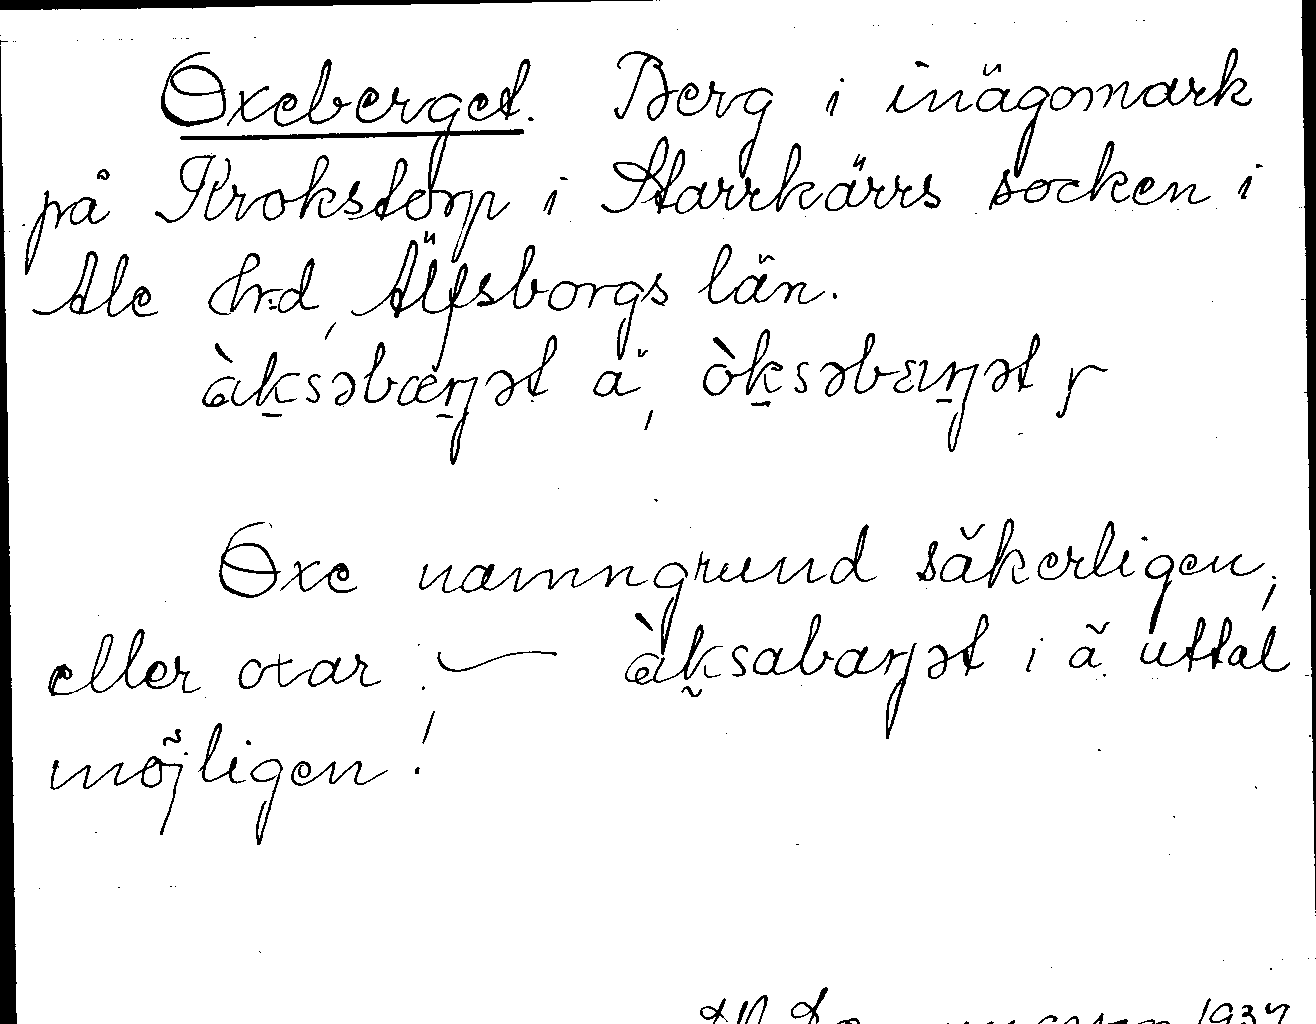 Oxeberget. Berg i inägomark
på Krokstorp i Starrkärrs socken i
Ale Hrd, Älfsborgs län.
àk̠səbæŋət ä, òk̠səbɛŋət r
Oxe namngrund säkerligen,
eller oxar; — àksabaŋət i ä uttal
möjligen!
1937